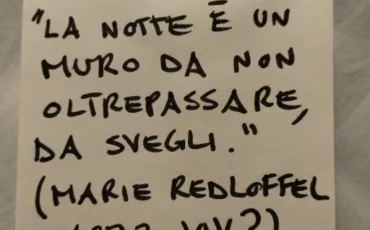 "LA NOTTE È UN
MURO DA NON
OLTREPASSARE,
DA SVEGLI."
(MARIE REDLOFFEL